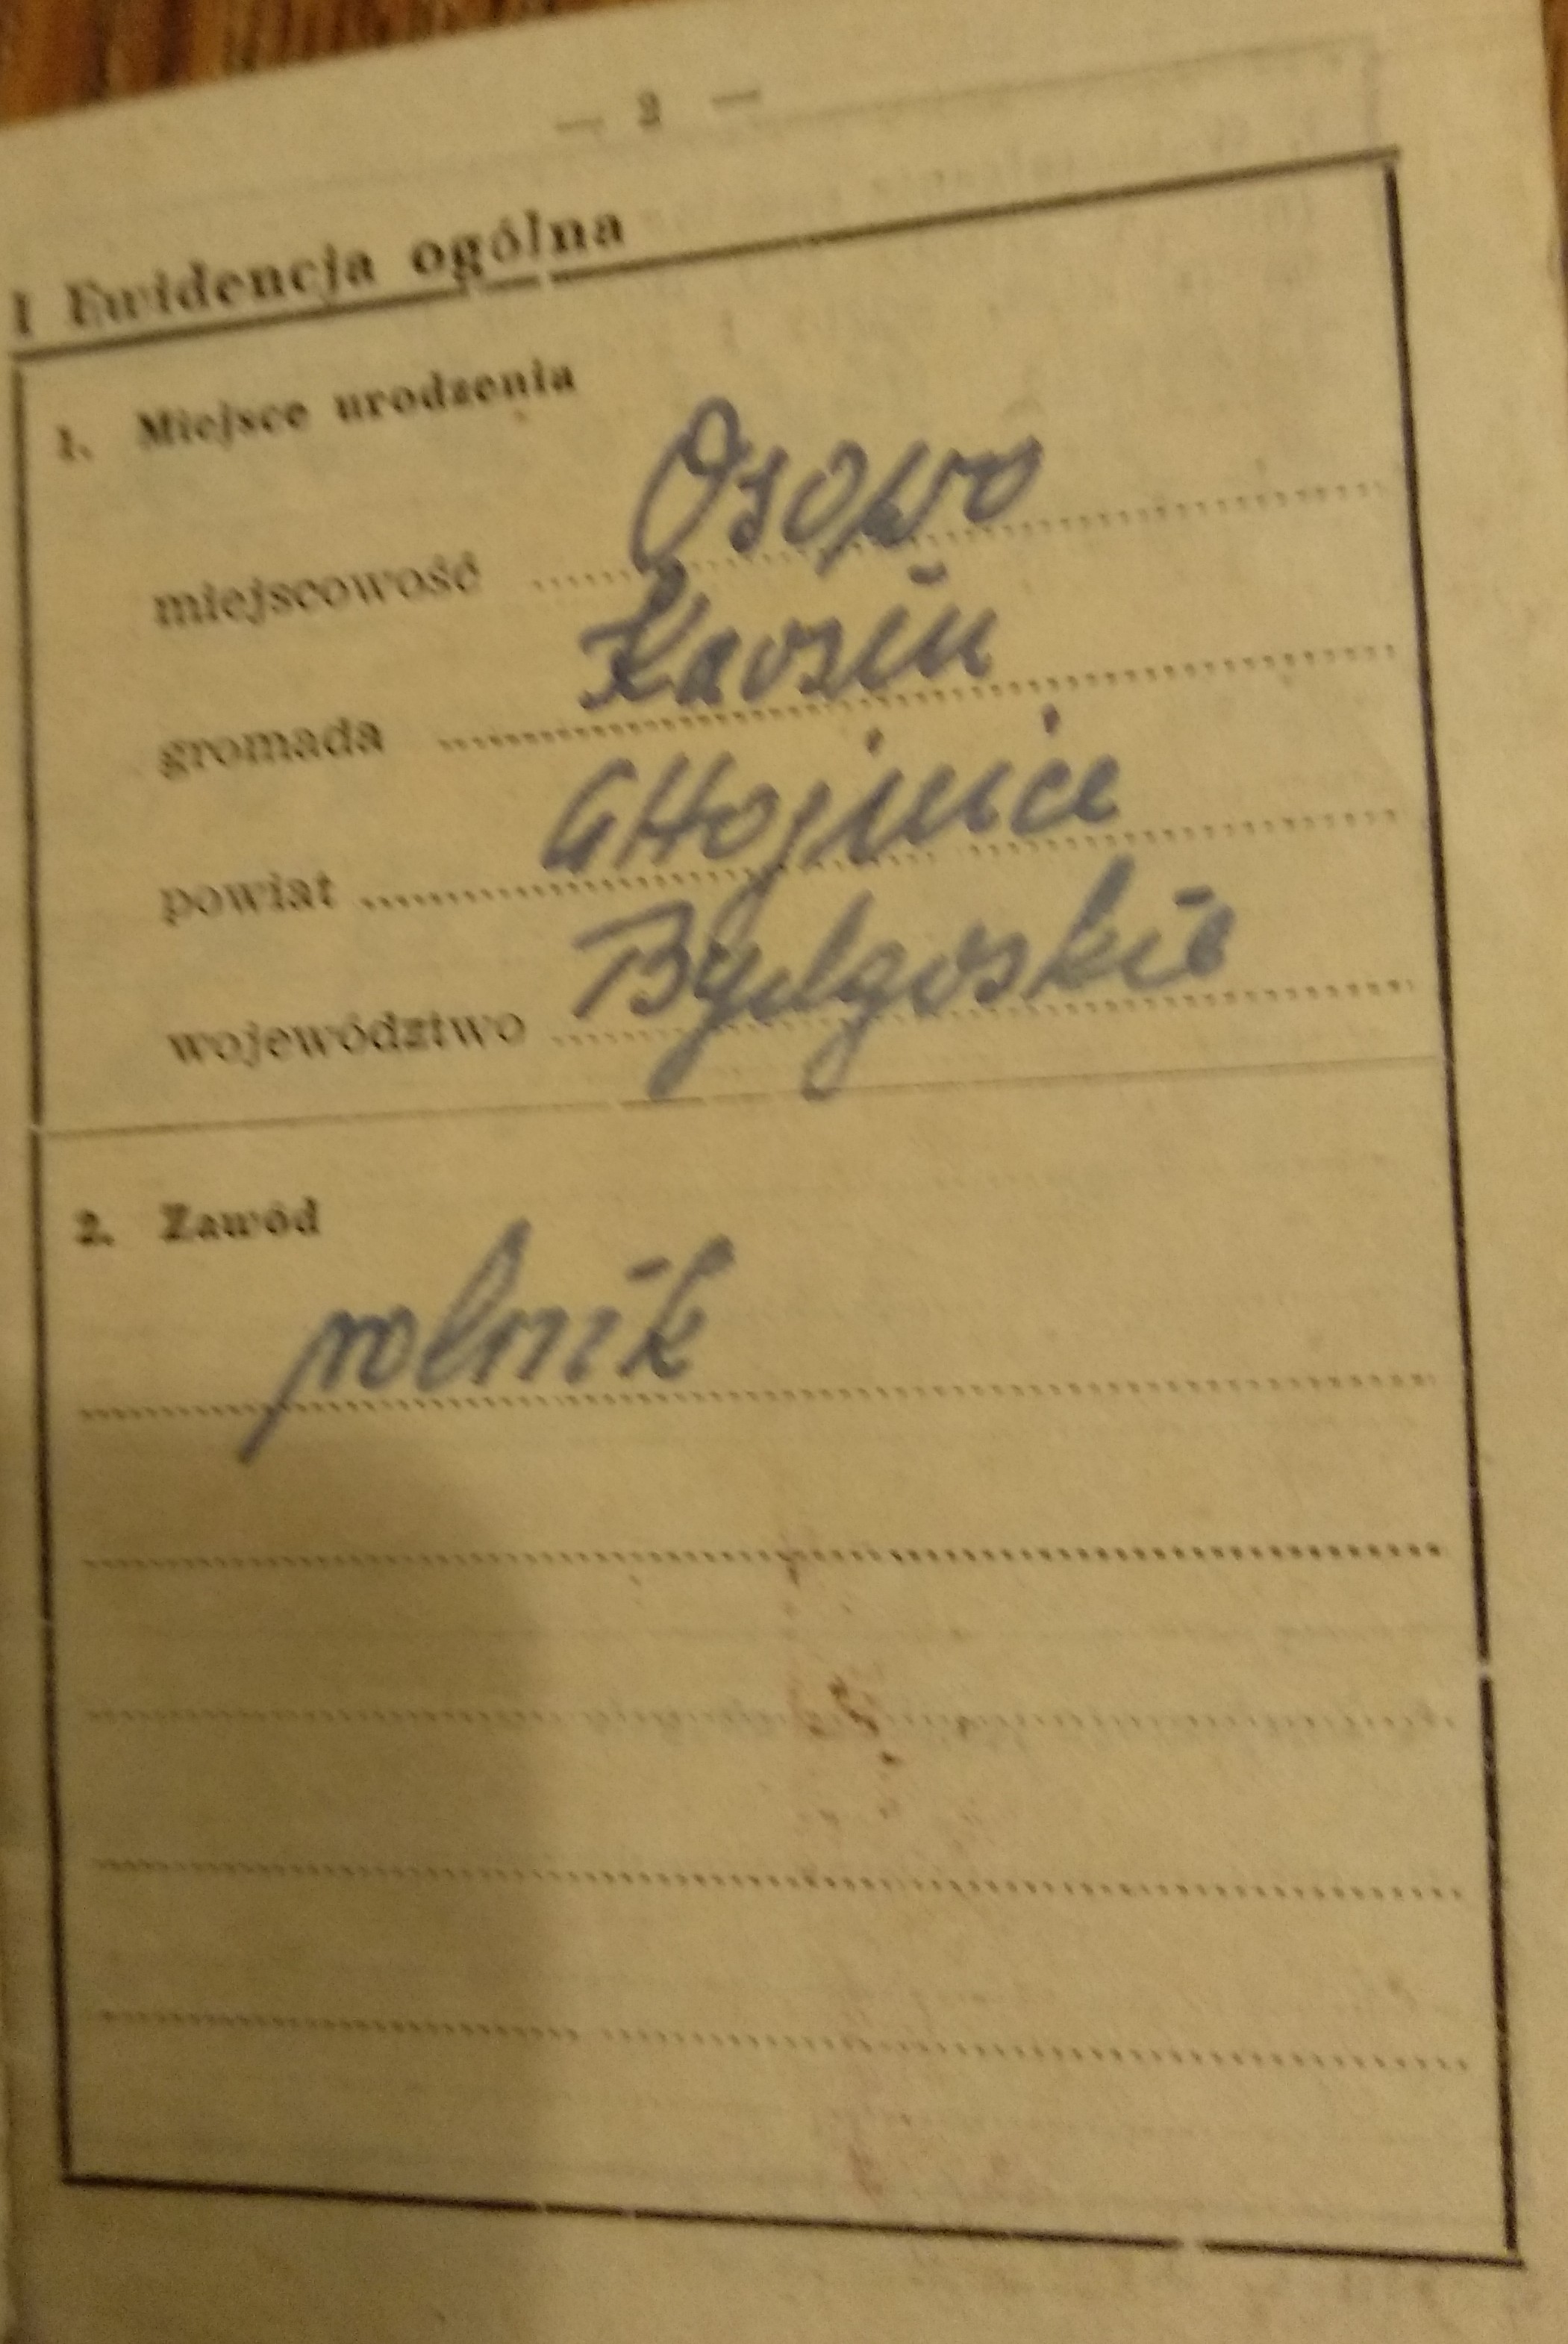 — 2 —
I Ewidencja ogólna
1. Miejsce urodzenia
miejscowość Osowo
gromada Karsin
powiat Chojnice
województwo Bydgoskie
2. Zawód
rolnik